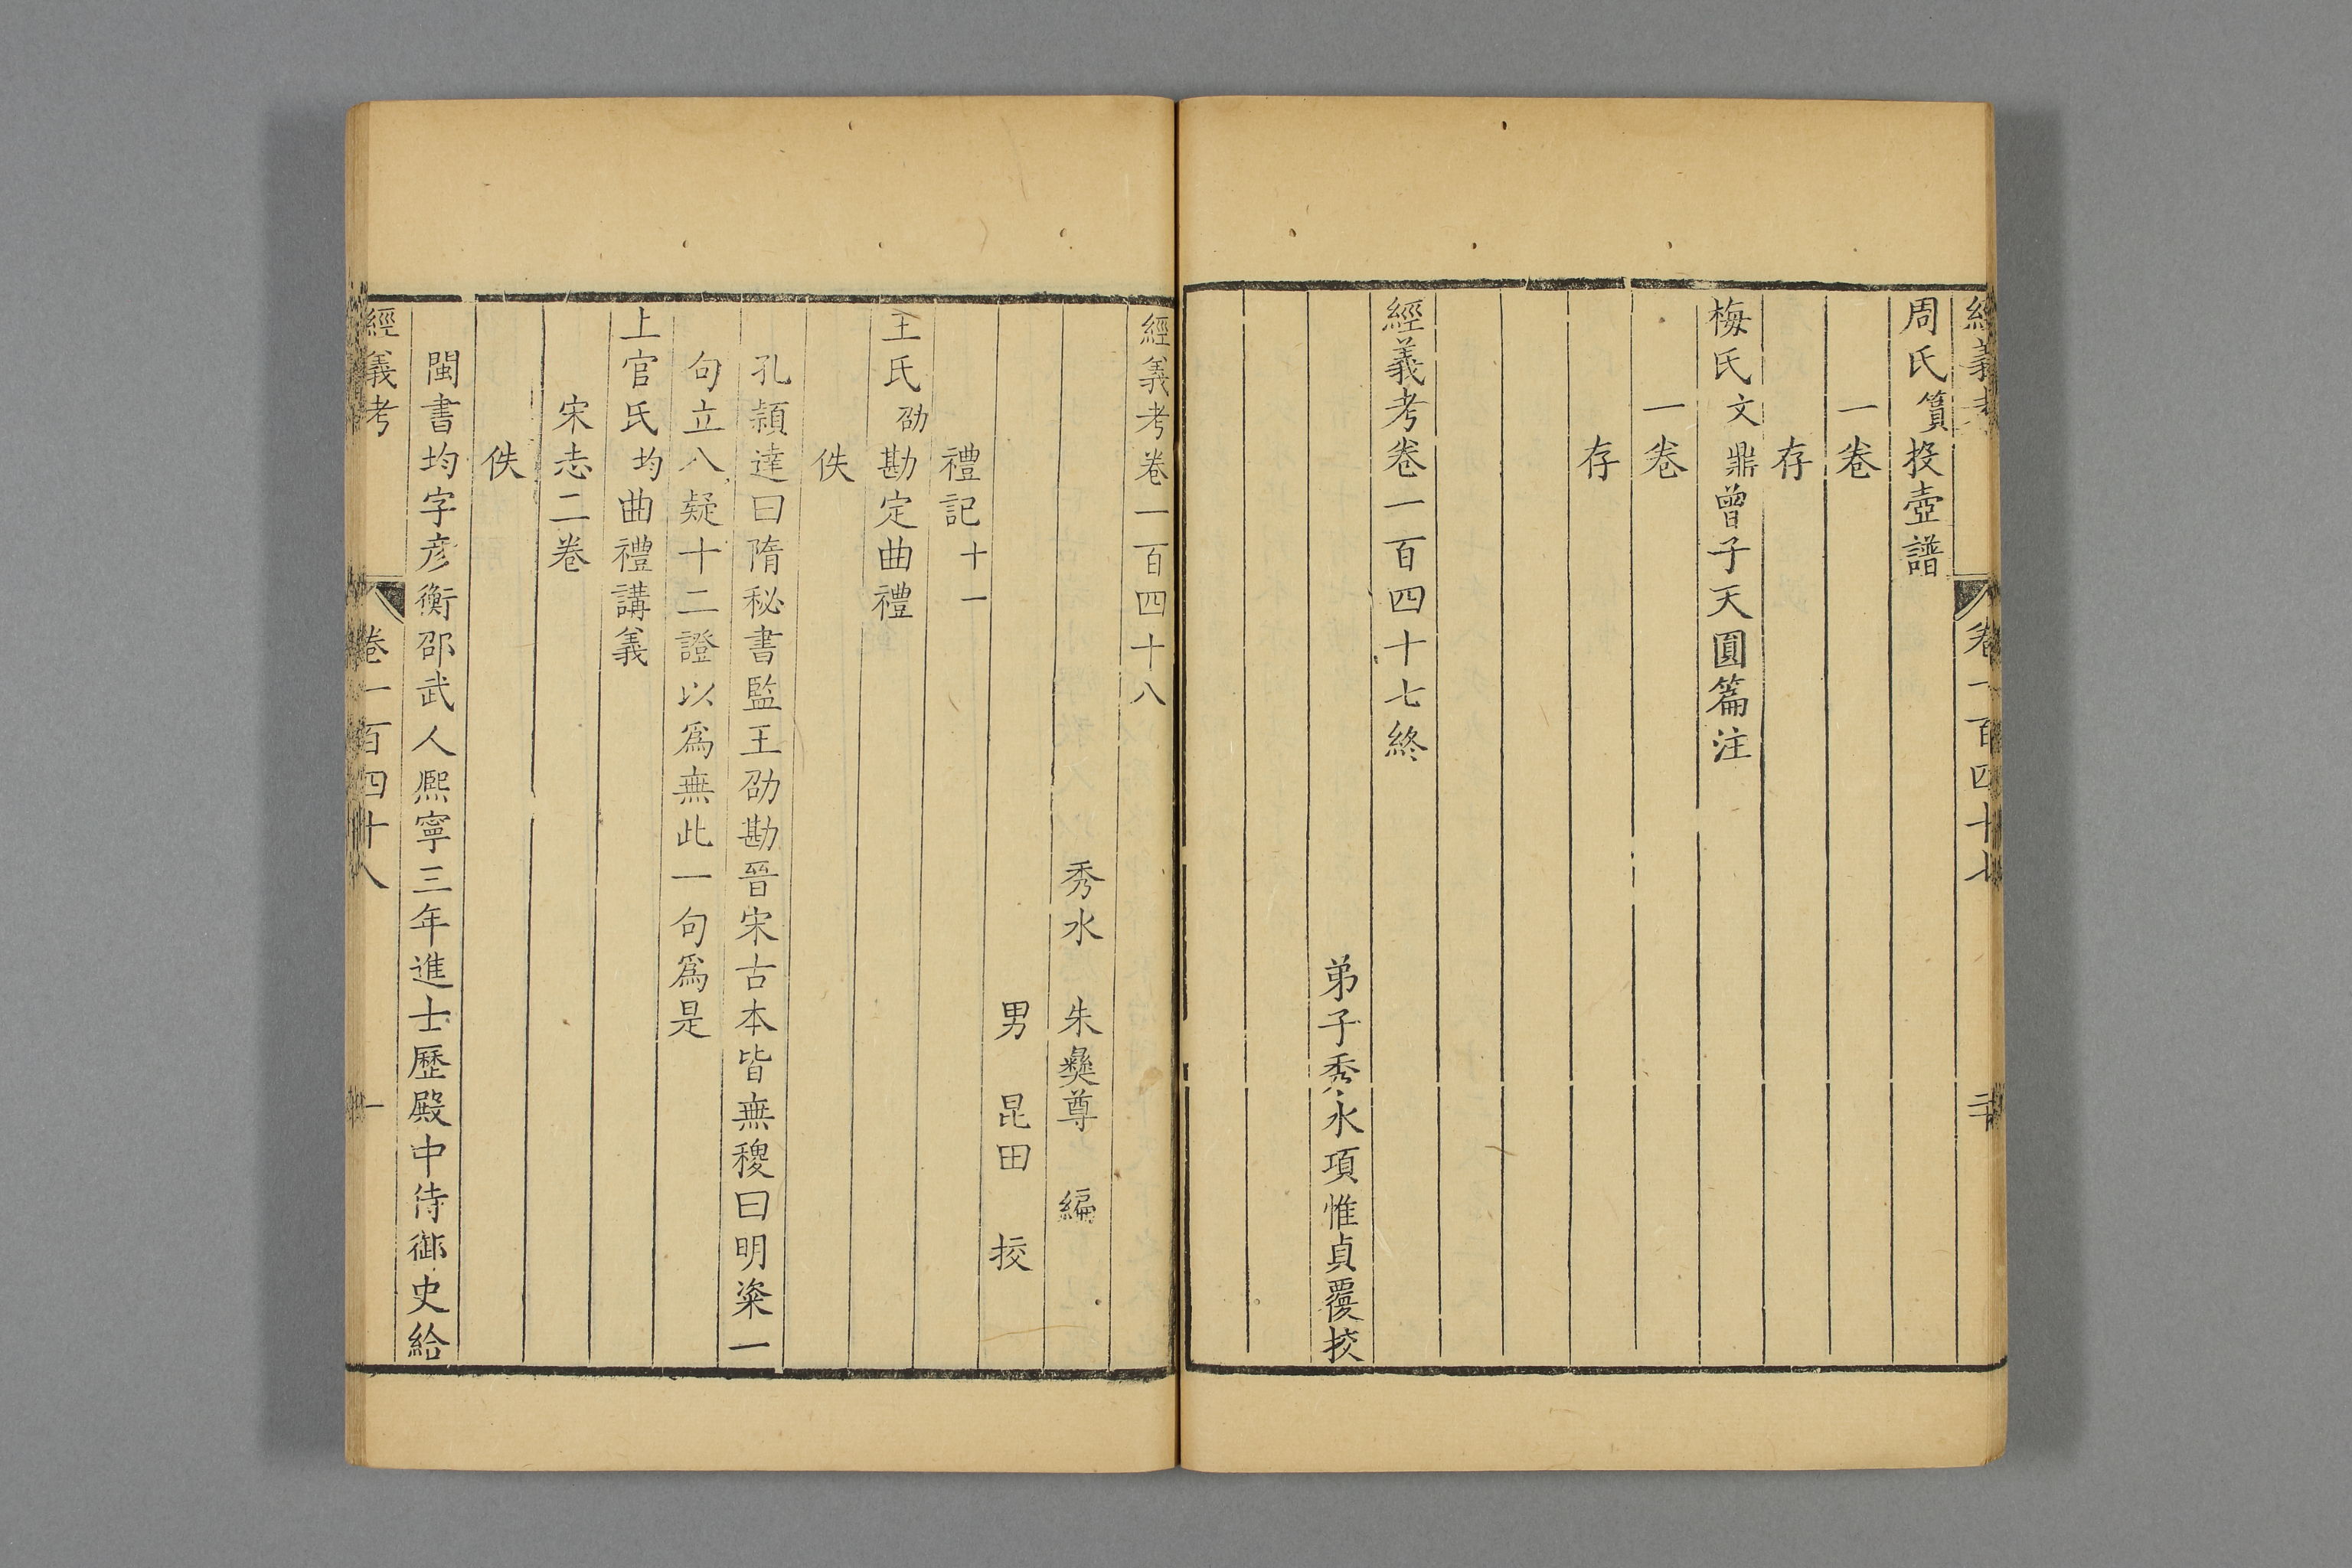 經義考 卷一百四十七 二十
周氏篔投壺譜
一卷
存
梅氏文鼎曾子天圓篇注
一卷
存
經義考卷一百四十七終
弟子秀水項惟貞覆挍
經義考卷一百四十八
秀水 朱彝尊 編
男 昆田 挍
禮記十一
王氏劭勘定曲禮
佚
孔穎達曰隋秘書監王劭勘晉宋古本皆無稷曰明粢一
句立八疑十二證以爲無此一句爲是
上官氏均曲禮講義
宋志二卷
佚
閩書均字彦衡邵武人熈寧三年進士歷殿中侍御史給
經義考 卷一百四十八 一